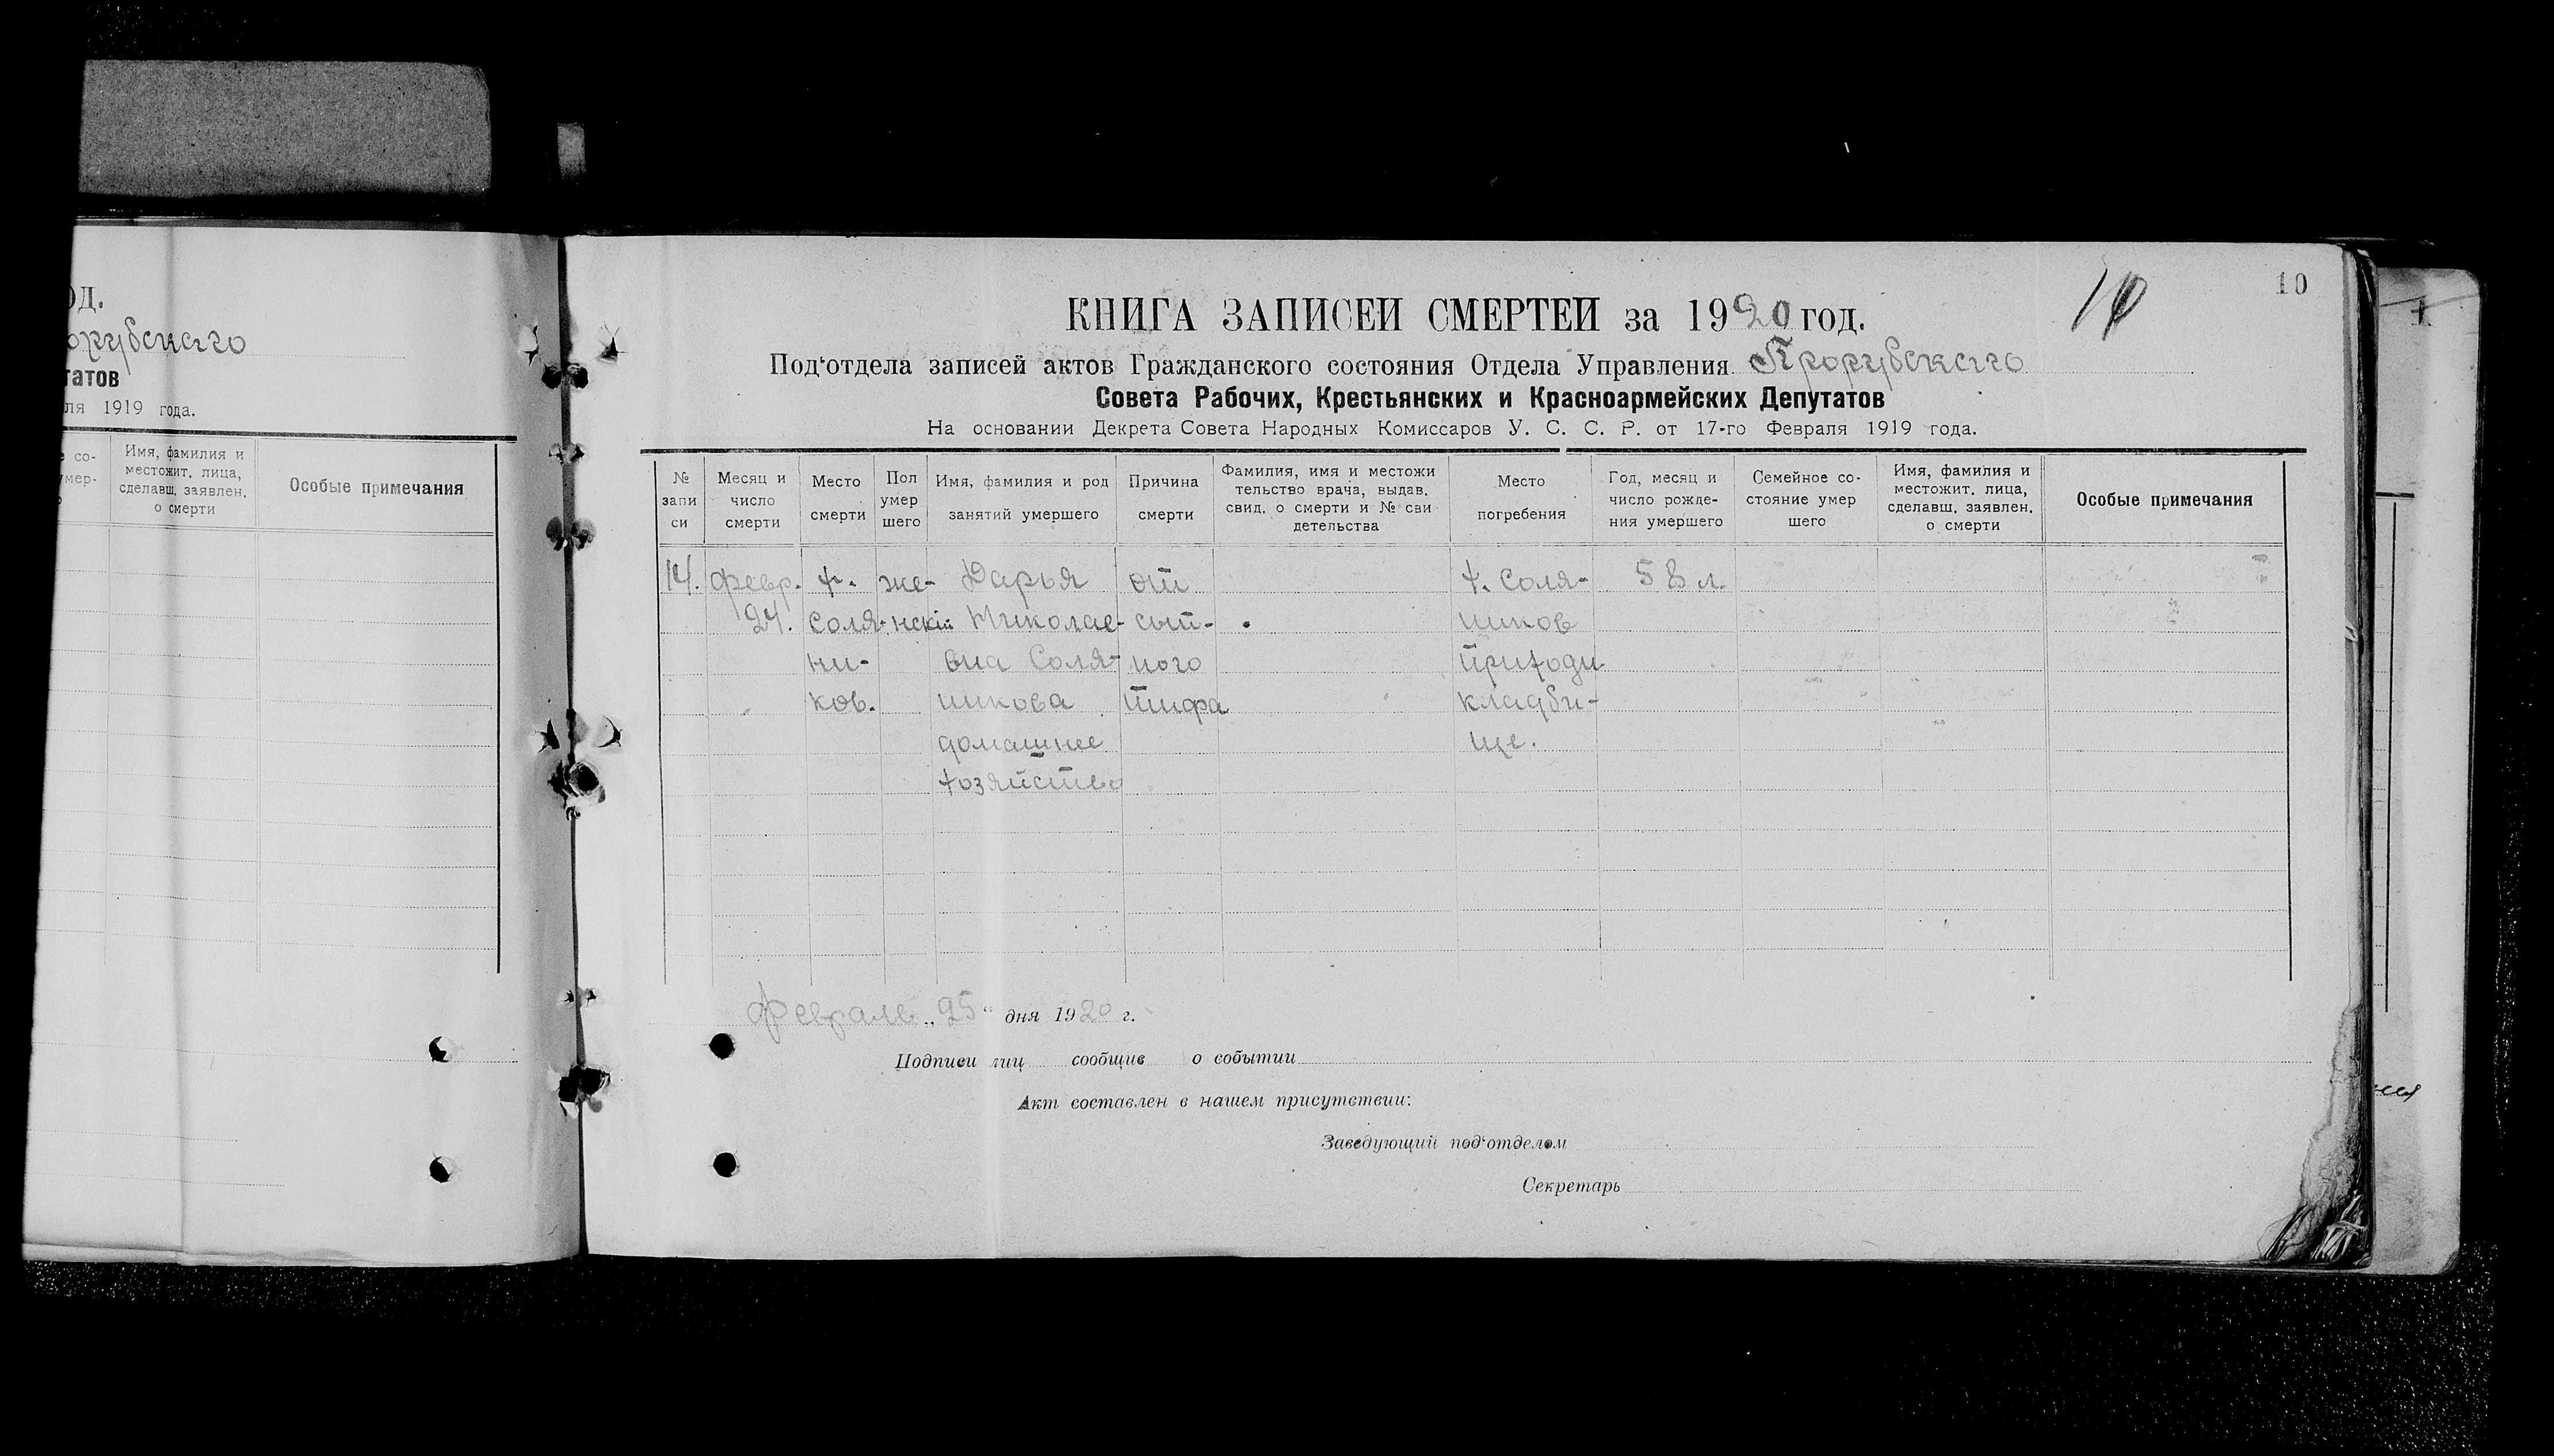 од.
орубскаго
татов
ля 1919 года.
Имя, фамилия и местожит. лица, сделавш. заявлен. о смерти
Особые примечания
10
КНИГА ЗАПИСЕЙ СМЕРТЕЙ за 1920 год.
Под‘отдела записей актов Гражданского состояния Отдела Управления Прорубскаго
Совета Рабочих, Крестьянских и Красноармейских Депутатов
На основании Декрета Совета Народных Комиссаров У. С. С. Р. от 17-го Февраля 1919 года.
№ запи си
Месяц и число смерти
Место смерти
Пол умер шего
Имя, фамилия и род занятий умершего
Причина смерти
Фамилия, имя и местожи тельство врача, выдав. свид. о смерти и № сви детельства
Место погребения
Год, месяц и число рожде- ния умершего
Семейное со- стояние умер шего
Имя, фамилия и местожит. лица, сделавш. заявлен. о смерти
Особые примечания
14. февр. х. же- Дарья от х. Соля- 58 л.
24. Соля- нскій Николае- сып- ников
ни- вна Соля- ного приходи
ков. никова тифа кладби-
домашнее ще.
хозяйство
Февраль „25“ дня 1920 г.
Подписи лиц сообщив о событии
Акт составлен в нашем присутствии:
Заведующий под‘отделом
Секретарь